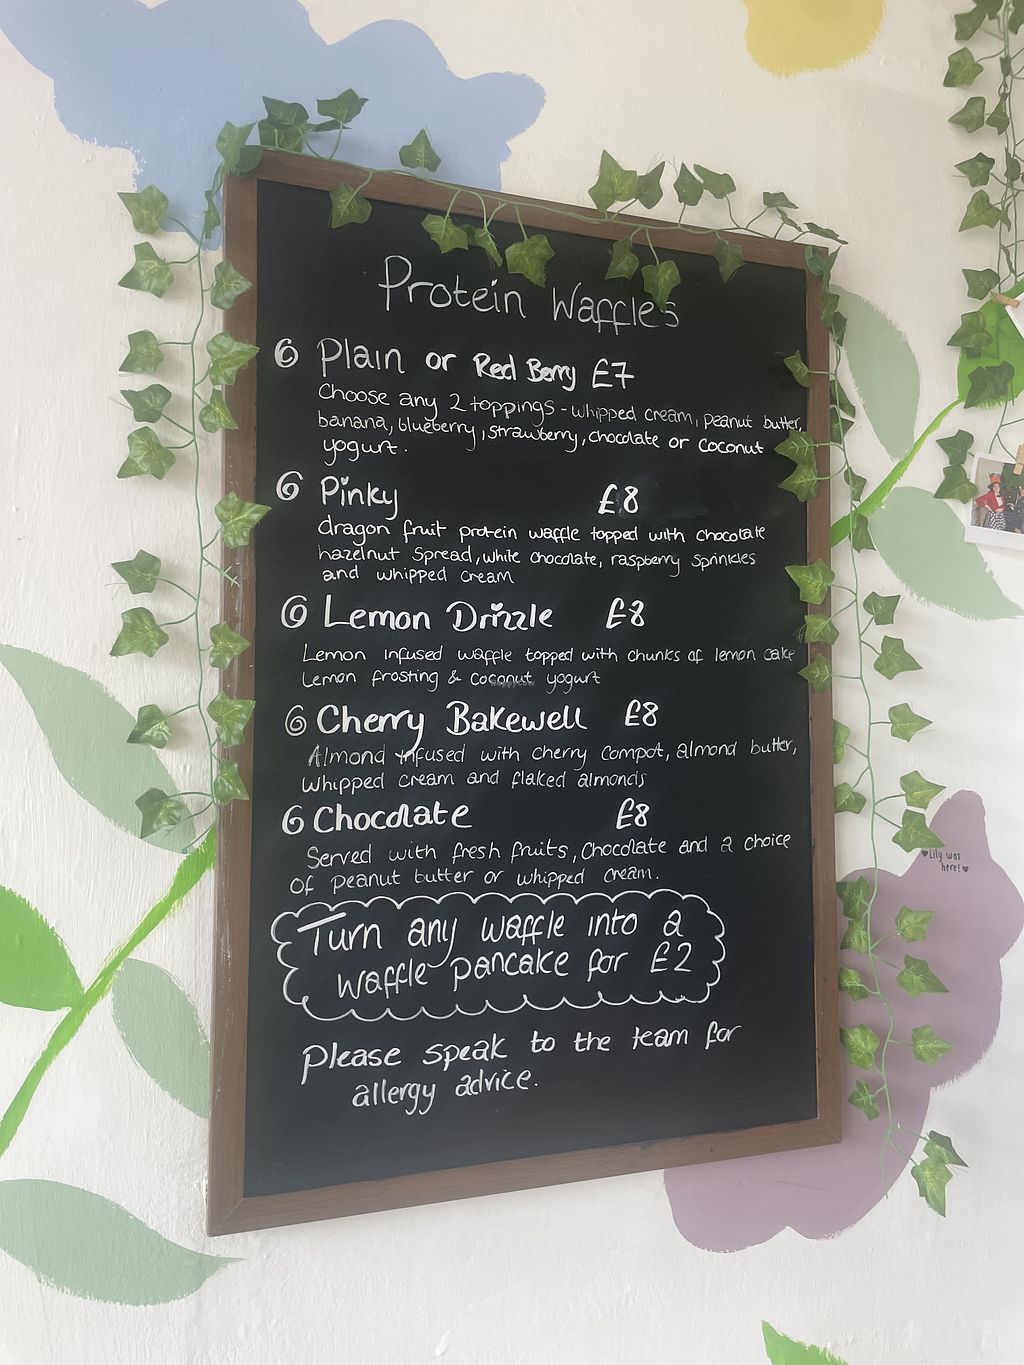 Protein Waffles
Plain or Red Berry £7
Choose any 2 toppings - whipped cream, peanut butter,
banana, blueberry, strawberry, chocolate or coconut
yogurt.
Pinky £8
dragon fruit protein waffle topped with chocolate
hazelnut spread, white chocolate, raspberry sprinkles
and whipped cream
Lemon Drizzle £8
Lemon infused waffle topped with chunks of lemon cake
Lemon frosting & coconut yogurt
Cherry Bakewell £8
Almond infused with cherry compot, almond butter,
whipped cream and flaked almonds
Chocolate £8
Served with fresh fruits, chocolate and a choice
of peanut butter or whipped cream.
Turn any waffle into a
waffle pancake for £2
Please speak to the team for
allergy advice.
Lily was
here!